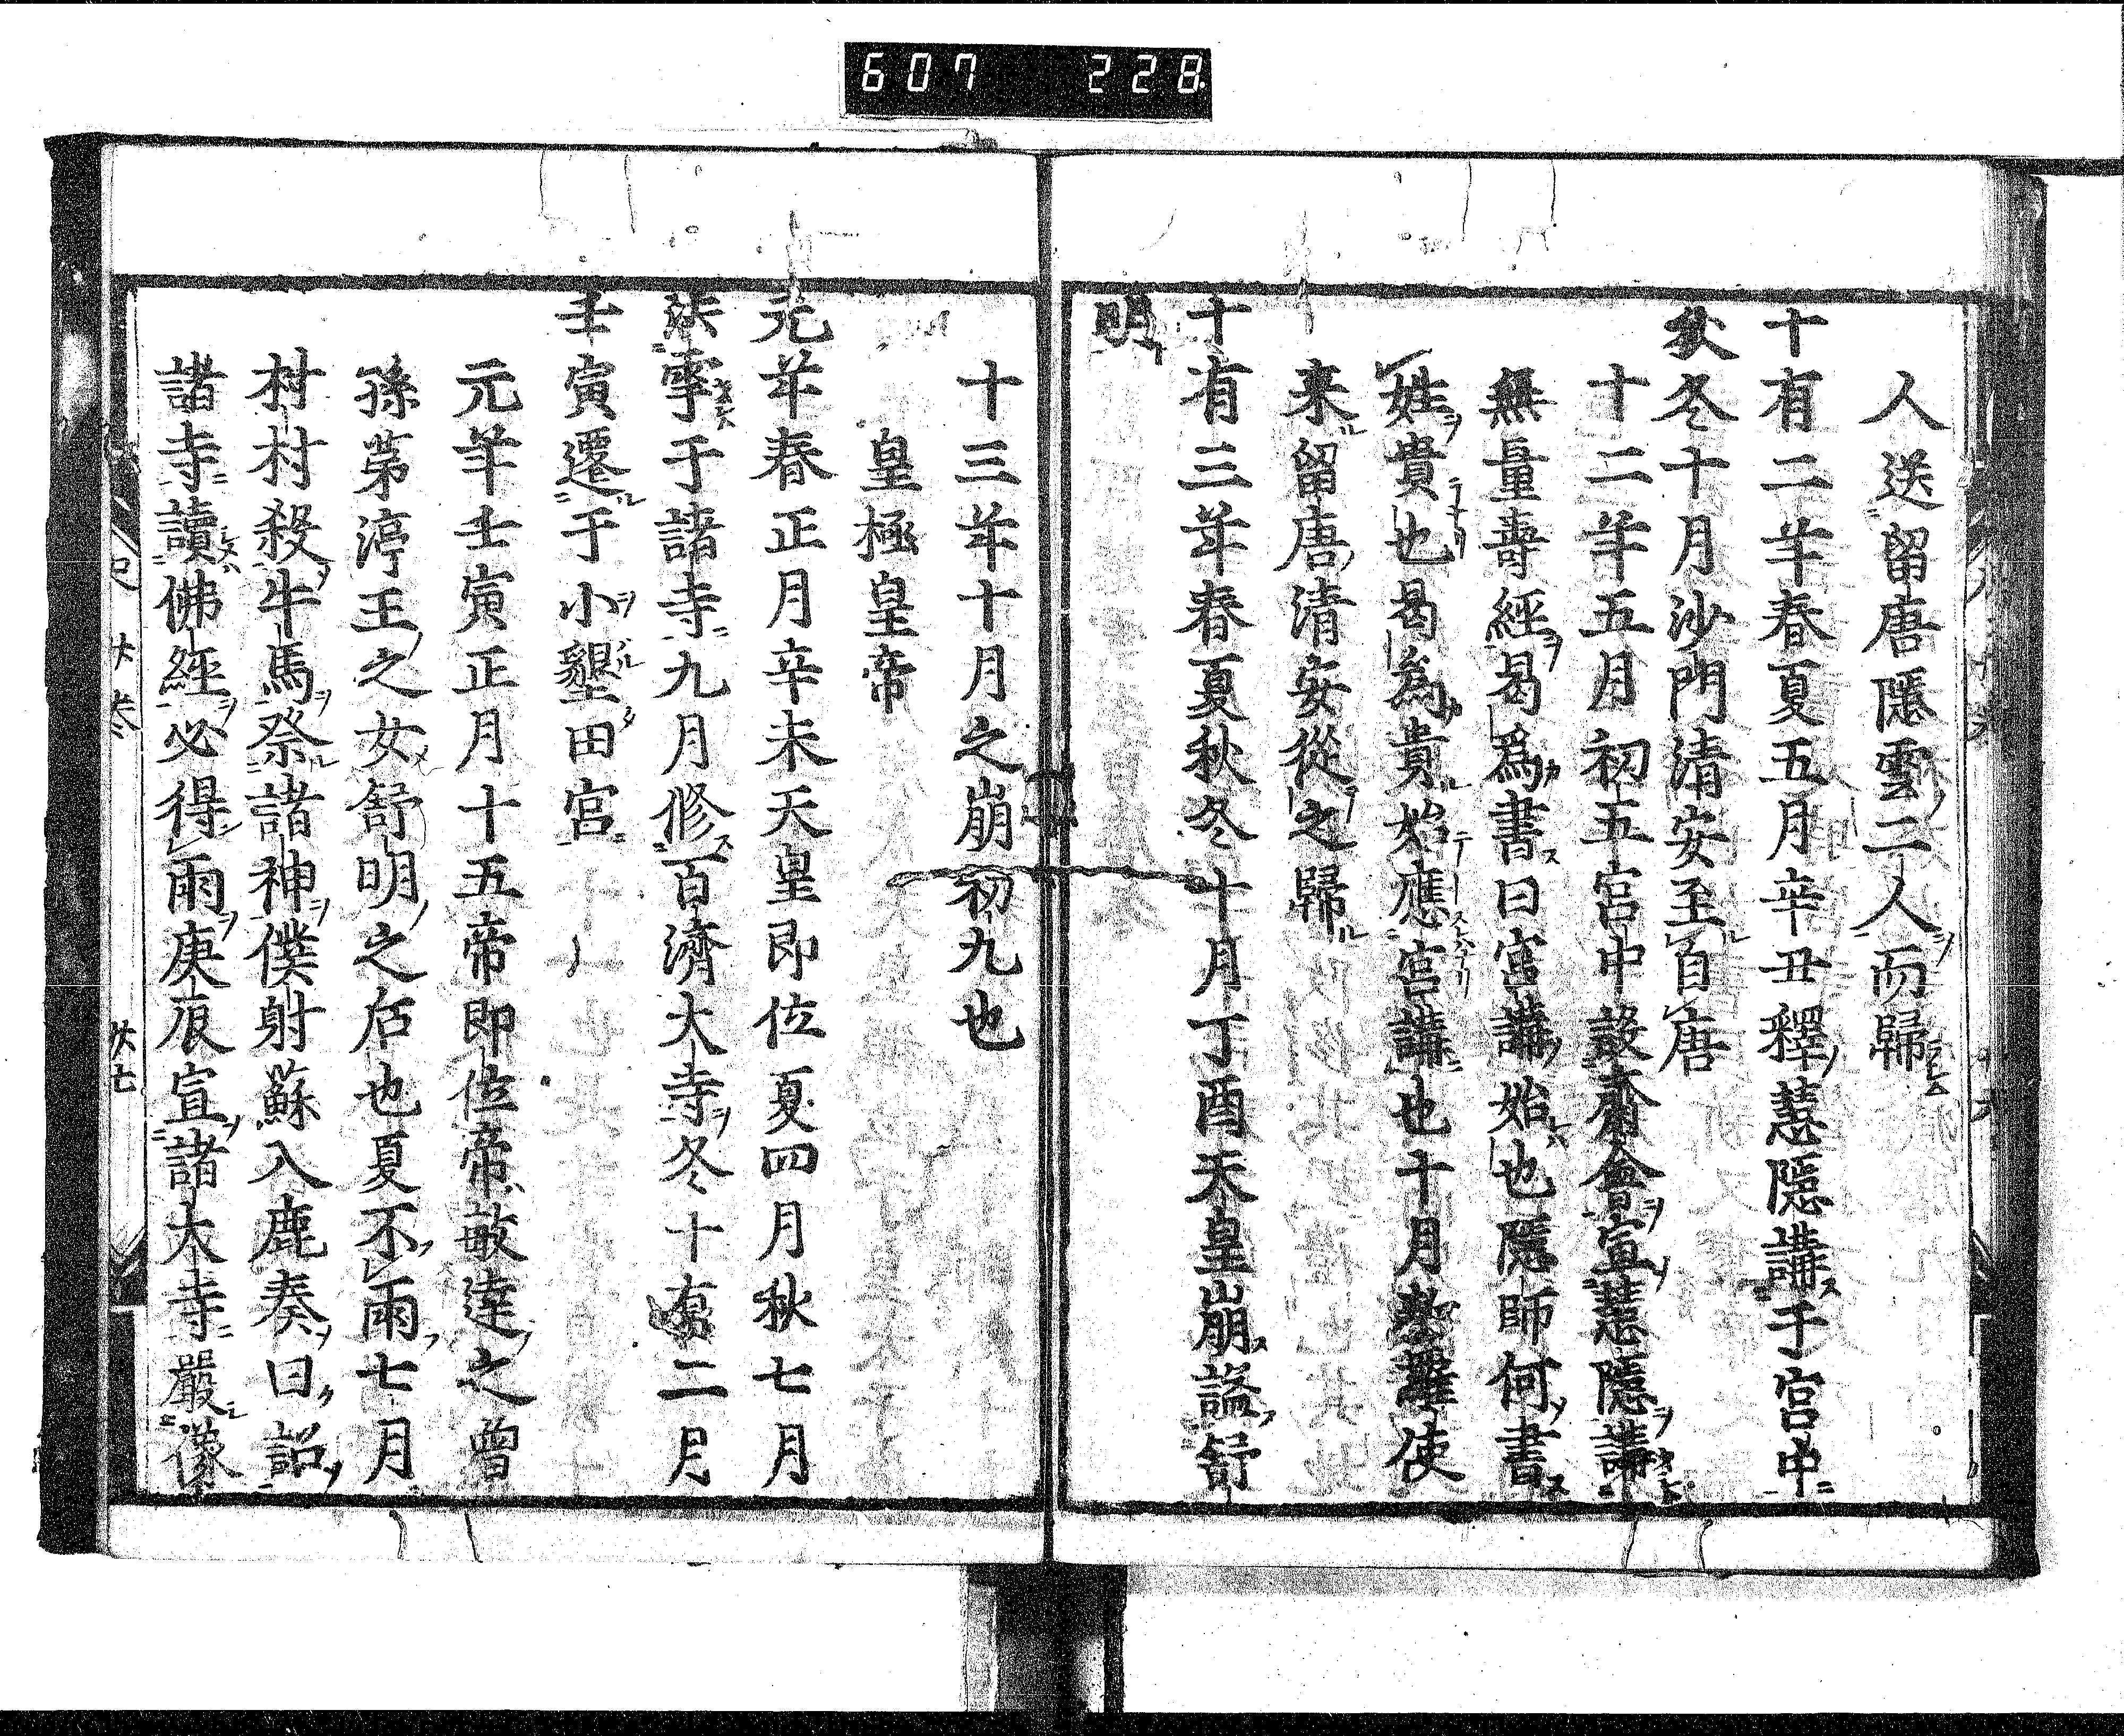 607 228
人送留唐隱雲二人而歸
十有二年春夏五月辛丑釋慧隱講于宮中
秋冬十月沙門清安至自唐
十二年五月初五宮中設齋會宣慧隱講
無量壽經曷爲書曰宮講始也隱師何書
姓貴也曷爲貴始應宮講也十月新羅使
来留唐清安從之歸
十有三年春夏秋冬十月丁酉天皇崩諡舒
明
十三年十月之崩初九也
皇極皇帝
元年春正月辛未天皇即位夏四月秋七月
洪雩于諸寺九月修百濟大寺冬十有二月
壬寅遷于小墾田宮
元年壬寅正月十五帝即位帝敏達之曾
孫苐渟王之女舒明之后也夏不雨七月
村村殺牛馬祭諸神僕射蘇入鹿奏曰詔
諸寺讀佛經必得雨庚辰宣諸大寺嚴像